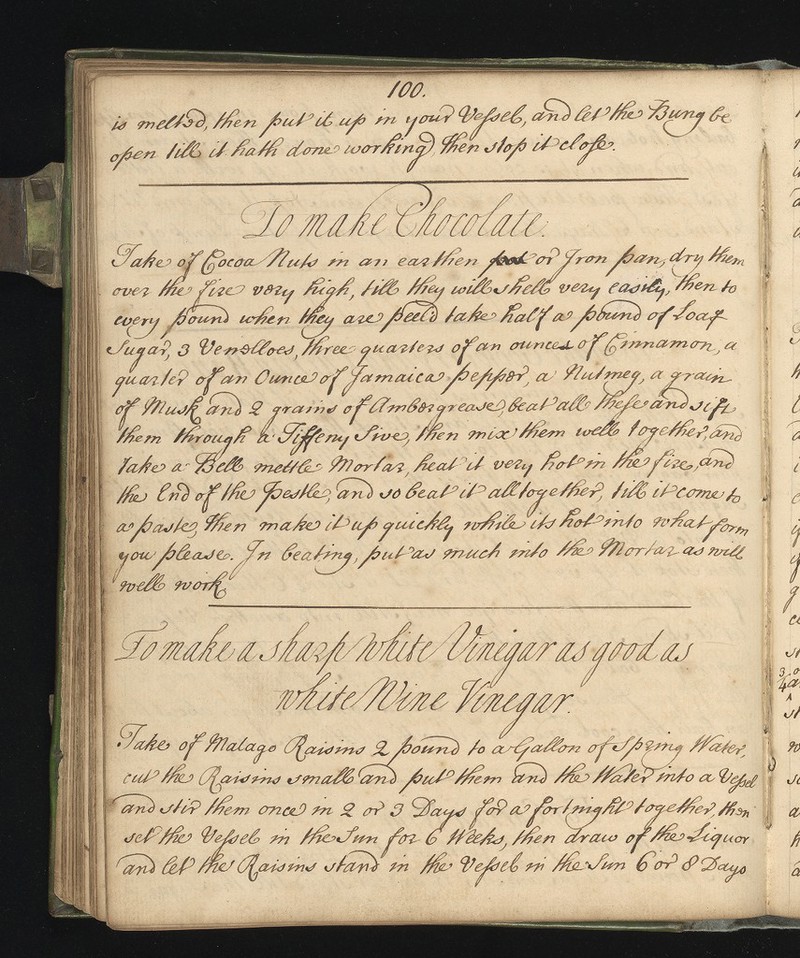 100.
is melted, then put it up in your Vessel, and let the Bung be
open till it hath done working, then stop it close.
To make Chocolate.
Take of Cocoa Nuts in an earthen pot or Iron pan, dry them
over the fire very high, till they will shell very easily, then to
every pound when they are peel'd take half a pound of Loaf
Sugar, 3 Venelloes, three quarters of an ounce of Cinnamon, a
quarter of an Ounce of Jamaica Pepper, a Nutmeg, a grain
of Musk and 2 grains of Ambergrease, beat all these and sift
them through a Tiffeny Sive, then mix them well together, and
take a Bell mettle Mortar, heat it very hot in the fire, and
the End of the Pestle, and so beat it all together, till it come to
a paste, then make it up quickly while its hot into what form
you please. In beating, put as much into the Mortar as will
well work.
To make a sharp white Vinegar as good as
white Wine Vinegar.
Take of Malago Raisins 2 pound to a Gallon of Spring Water,
cut the Raisins small and put them and the Water into a Vessel
and stir them once in 2 or 3 Days for a fortnight together, then
set the Vessel in the Sun for 6 Weeks, then draw of the Liquor
and let the Raisins stand in the Vessel in the Sun 6 or 8 Days